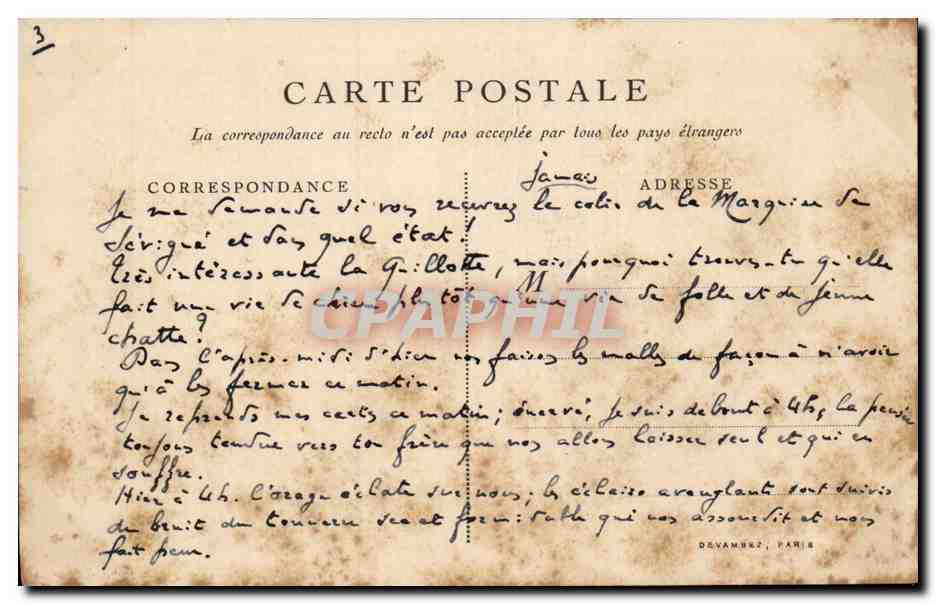 3
CARTE POSTALE
La correspondance au recto n'est pas acceptée par tous les pays étrangers
CORRESPONDANCE
ADRESSE
jamais
Je me demande si vous recevrez le colis de la Marquise de
Sévigné et dans quel état!
Très intéressante la Guillotte, mais pourquoi trouves-tu qu'elle
M
fait une vie de chien plutôt qu'une vie de folle et de jeune
chatte?
CPAPHIL
Dans l'après-midi d'hier nos faisons les malles de façon à n'avoir
qu'à les fermer ce matin.
Je reprends mes cartes ce matin; énervé, je suis debout à 4h, la pensée
toujours tendue vers ton frère que nos allons laisser seul et qui en
souffre.
Hier à 4h. l'orage éclate sur nous; les éclairs aveuglants sont suivis
du bruit du tonnerre sec et formidable qui nos assourdit et nous
fait peur.
DEVAMBEZ, PARIS